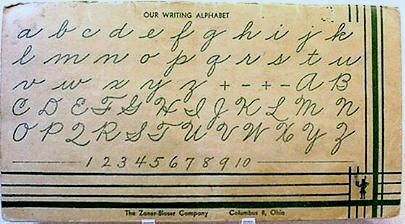 OUR WRITING ALPHABET
a b c d e f g h i j k
l m n o p q r s t u
v w x y z + - + - A B
C D E F G H I J K L M N
O P Q R S T U V W X Y Z
1 2 3 4 5 6 7 8 9 10
The Zaner-Bloser Company Columbus 8, Ohio